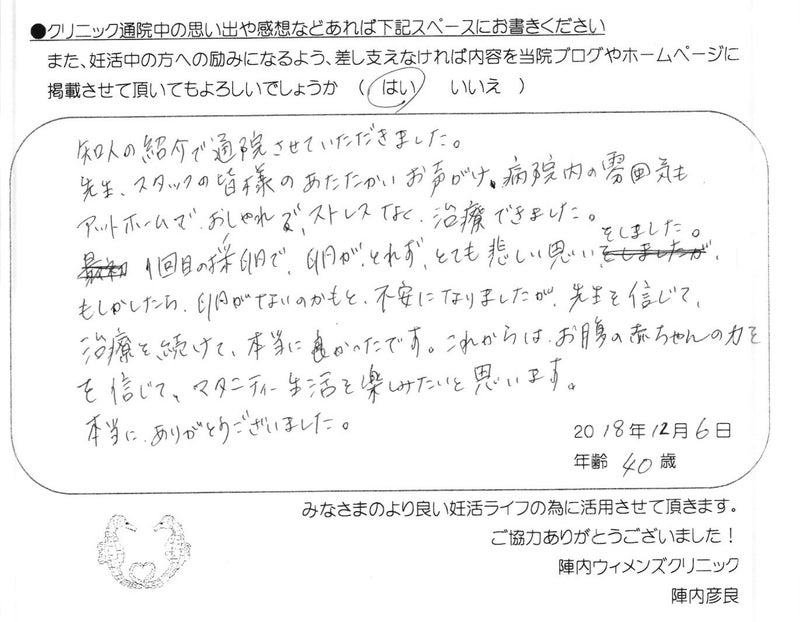 ●クリニック通院中の思い出や感想などあれば下記スペースにお書きください
また、妊活中の方への励みになるよう、差し支えなければ内容を当院ブログやホームページに
掲載させて頂いてもよろしいでしょうか （ はい いいえ ）
知人の紹介で通院させていただきました。
先生、スタッフの皆様のあたたかいお声がけ、病院内の雰囲気も
アットホームで、おしゃれで、ストレスなく、治療できました。
最初 1回目の採卵で、卵がとれず、とても悲しい思いをしました。をしましたが、
もしかしたら、卵がないのかもと、不安になりましたが、先生を信じて、
治療を続けて、本当に良かったです。これからは、お腹の赤ちゃんの力を
を信じて、マタニティー生活を楽しみたいと思います。
本当に、ありがとうございました。
2018年12月6日
年齢 40歳
みなさまのより良い妊活ライフの為に活用させて頂きます。
ご協力ありがとうございました！
陣内ウィメンズクリニック
陣内彦良